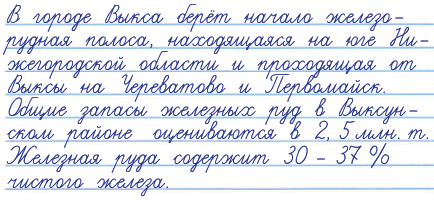 В городе Выкса берёт начало железо-
рудная полоса, находящаяся на юге Ни-
жегородской области и проходящая от
Выксы на Череватово и Первомайск.
Общие запасы железных руд в Выксун-
ском районе оцениваются в 2, 5 млн. т.
Железная руда содержит 30 - 37 %
чистого железа.